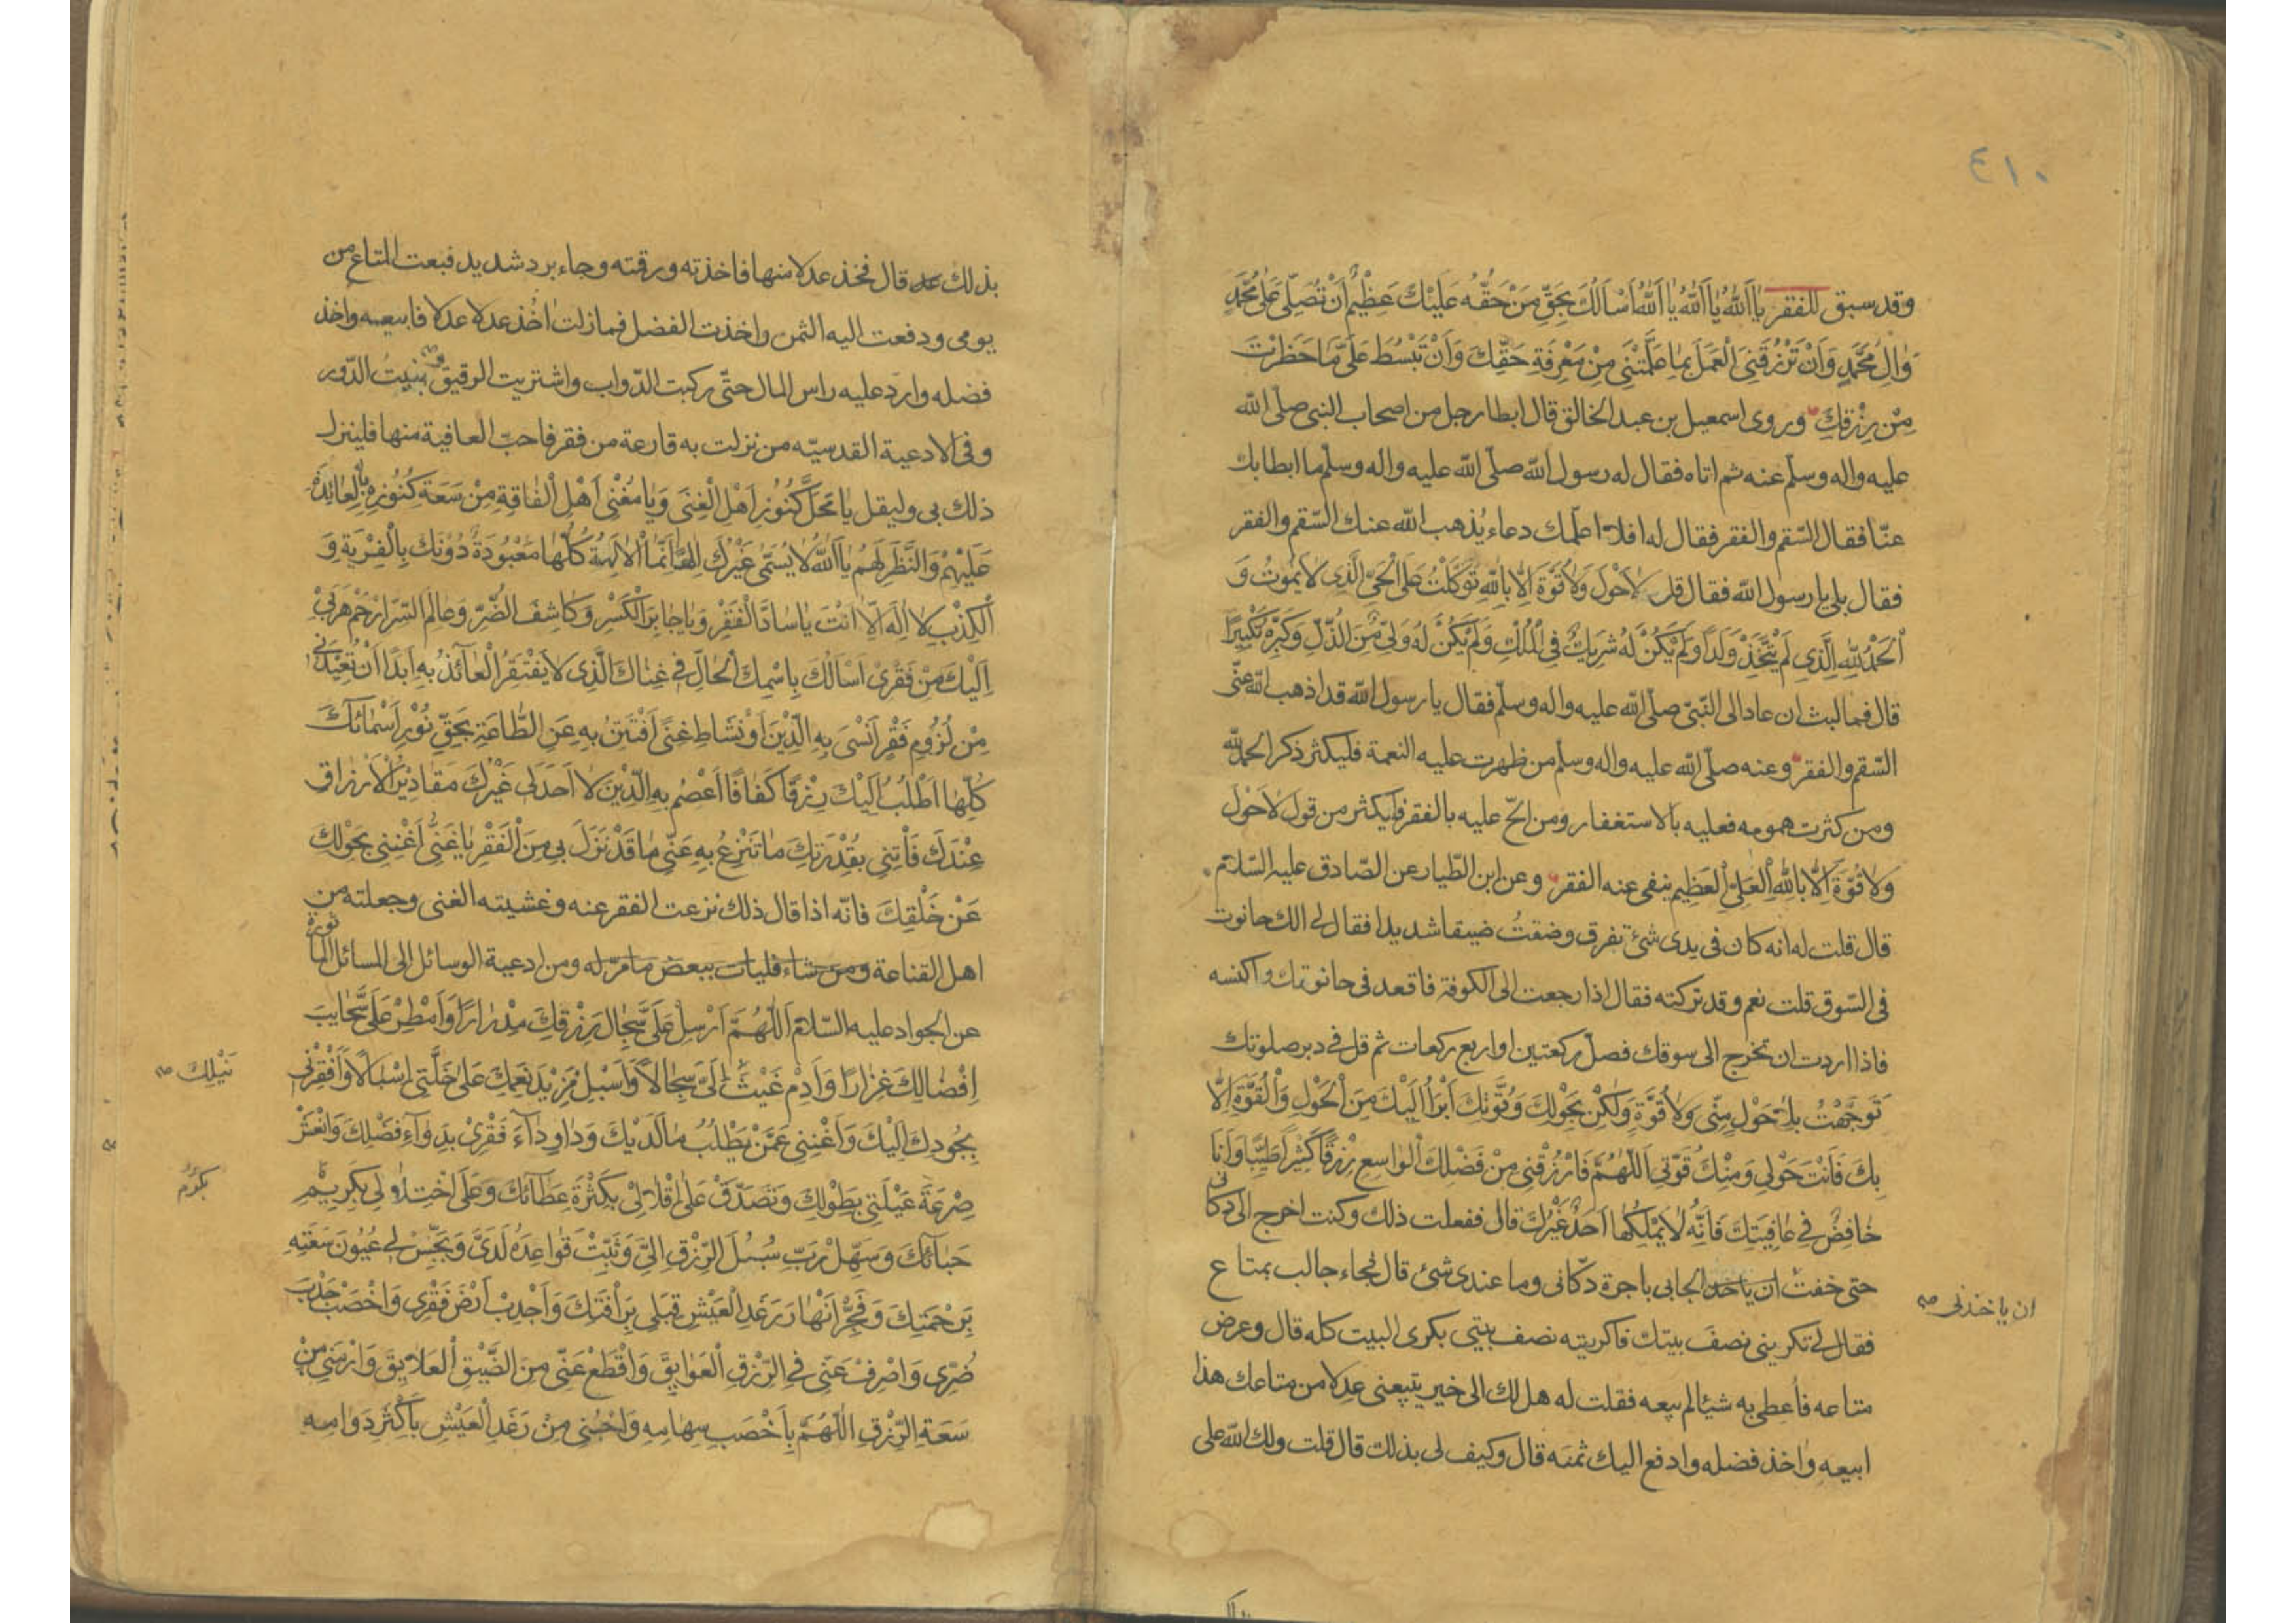 ٤١٠
وقد سبق للفقر يَا اَللّٰهُ يَا اَللّٰهُ يَا اَللّٰهُ اَسْاَلُكَ بِحَقِّ مَنْ حَقُّهُ عَلَيْكَ عَظِيْمٌ اَنْ تُصَلِّيَ عَلٰى مُحَمَّدٍ
وَاٰلِ مُحَمَّدٍ وَاَنْ تَرْزُقَنِيَ الْعَمَلَ بِمَا عَلَّمْتَنِيْ مِنْ مَعْرِفَةِ حَقِّكَ وَاَنْ تَبْسُطَ عَلَيَّ مَا حَظَرْتَ
مِنْ رِزْقِكَ وروى اسمعيل بن عبد الخالق قال ابطا رجل من اصحاب النبى صلّى الله
عليه واله وسلّم عنه ثم اتاه فقال له رسول الله صلّى الله عليه واله وسلّم ما ابطا بك
عنّا فقال السّقم والفقر فقال له افلا اعلّمك دعاء يُذهب الله عنك السّقم والفقر
فقال بلى يا رسول الله فقال قل لاَحَوْلَ وَلاَ قُوَّةَ اِلاَّ بِاللّٰهِ تَوَكَّلْتُ عَلَى الْحَيِّ الَّذِى لاَ يَمُوْتُ وَ
اَلْحَمْدُ لِلّٰهِ الَّذِى لَمْ يَتَّخِذْ وَلَدًا وَلَمْ يَكُنْ لَهُ شَرِيْكٌ فِى الْمُلْكِ وَلَمْ يَكُنْ لَهُ وَلِيٌّ مِنَ الذُّلِّ وَكَبِّرْهُ تَكْبِيْرًا
قال فما لبث ان عاد الى النّبىّ صلّى الله عليه واله وسلّم فقال يا رسول الله قد اذهب الله عنّى
السّقم والفقر وعنه صلّى الله عليه واله وسلّم من ظهرت عليه النعمة فليكثر ذكر الحمد لله
ومن كثرت همومه فعليه بالاستغفار ومن الحّ عليه بالفقر فليكثر من قول لاَحَوْلَ
وَلاَ قُوَّةَ اِلاَّ بِاللّٰهِ الْعَلِيِّ الْعَظِيْمِ ينفى عنه الفقر وعن ابن الطّيار عن الصّادق عليه السّلام
قال قلت له انه كان فى يدى شئ تفرق وضقتُ ضيقا شديدا فقال لى الك حانوت
فى السّوق قلت نعم وقد تركته فقال اذا رجعت الى الكوفة فاقعد فى حانوتك واكنسه
فاذا اردت ان تخرج الى سوقك فصلّ ركعتين او اربع ركعات ثم قل فى دبر صلوتك
تَوَجَّهْتُ بِلاَ حَوْلٍ مِنِّى وَلاَ قُوَّةٍ وَلٰكِنْ بِحَوْلِكَ وَقُوَّتِكَ اَبْرَأُ اِلَيْكَ مِنَ الْحَوْلِ وَالْقُوَّةِ اِلاَّ
بِكَ فَاَنْتَ حَوْلِى وَمِنْكَ قُوَّتِى اَللّٰهُمَّ فَارْزُقْنِى مِنْ فَضْلِكَ الْوَاسِعِ رِزْقًا كَثِيْرًا طَيِّبًا وَاَنَا
خَافِضٌ فِى عَافِيَتِكَ فَاِنَّهُ لاَ يَمْلِكُهَا اَحَدٌ غَيْرُكَ قال ففعلت ذلك وكنت اخرج الى دكانى
حتى خفت ان ياخذ الجابى باجرة دكّانى وما عندى شئ قال فجاء جالب بمتاع
ان ياخذنى ص
فقال لى تكرينى نصف بيتك فاكريته نصف بيتى بكرى البيت كله قال وعرض
متاعه فاُعطى به شيئا لم يبعه فقلت له هل لك الى خير تبيعنى عدلا من متاعك هذا
ابيعه واخذ فضله وادفع اليك ثمنه قال وكيف لى بذلك قال قلت ولك الله على
بذلك قال فخذ عدلا منها فاخذته ورقته وجاء برد شديد فبعت المتاع من
يومى ودفعت اليه الثمن واخذت الفضل فما زلت اخُذ عدلا عدلا فابيعه واخذ
فضله وارد عليه راس المال حتّى ركبت الدّواب واشتريت الرقيق وبنيت الدّور
وفى الادعية القدسيّه من نزلت به قارعة من فقر فاحبّ العافية منها فلينزل
ذلك بى وليقل يَا مَحَلَّ كُنُوْزِ اَهْلِ الْغِنٰى وَيَا مُغْنِىَ اَهْلِ الْفَاقَةِ مِنْ سَعَةِ كُنُوْزِهِ بِالْعَائِدَةِ
عَلَيْهِمْ وَالنَّظَرِ لَهُمْ يَا اَللّٰهُ لاَ يُسَمّٰى غَيْرُكَ اِلٰهًا اِنَّمَا الْاٰلِهَةُ كُلُّهَا مَعْبُوْدَةٌ دُوْنَكَ بِالْفِرْيَةِ وَ
الْكِذْبِ لاَ اِلٰهَ اِلاَّ اَنْتَ يَا سَادَّ الْفَقْرِ وَيَا جَابِرَ الْكَسْرِ وَكَاشِفَ الضُّرِّ وَعَالِمَ السَّرَائِرِ ارْحَمْ هَرَبِيْ
اِلَيْكَ مِنْ فَقْرِىْ اَسْاَلُكَ بِاسْمِكَ الْحَالِّ فِى غِنَاكَ الَّذِى لاَ يَفْتَقِرُ الْعَائِذُ بِهِ اَبَدًا اَنْ تُعِيْذَنِىْ
مِنْ لُزُوْمِ فَقْرٍ اَنْسٰى بِهِ الدِّيْنَ اَوْ نَشَاطِ غِنًى اَفْتَتِنُ بِهِ عَنِ الطَّاعَةِ بِحَقِّ نُوْرِ اَسْمَائِكَ
كُلِّهَا اَطْلُبُ اِلَيْكَ رِزْقًا كَفَافًا اَعْصِمُ بِهِ الدِّيْنَ لاَ اَحَدَ لِى غَيْرُكَ مَقَادِيْرُ الْاَرْزَاقِ
عِنْدَكَ فَاْتِنِى بِقُدْرَتِكَ مَا تَنْزِعُ بِهِ عَنِّى مَا قَدْ نَزَلَ بِى مِنَ الْفَقْرِ يَا غَنِىُّ اَغْنِنِى بِحَوْلِكَ
عَنْ خَلْقِكَ فانّه اذا قال ذلك نزعت الفقر عنه وغشيته الغنى وجعلته من
اهل القناعة ومن شاء فليات ببعض ما مرّ له ومن ادعية الوسائل الى المسائل الماثورة
عن الجواد عليه السّلام اَللّٰهُمَّ اَرْسِلْ عَلَيَّ سِجَالَ رِزْقِكَ مِدْرَارًا وَاَمْطِرْ عَلَيَّ سَحَايِبَ
اِفْضَالِكَ غِزَارًا وَاَدِمْ غَيْثَ اِلَيَّ سِجَالاً وَاَسْبِلْ مَزِيْدَ نِعَمِكَ عَلٰى خَلَّتِى اِسْبَالاً وَاَفْقِرْنِى
نَيْلِكَ ص
بِجُوْدِكَ اِلَيْكَ وَاَغْنِنِى عَمَّنْ يَطْلُبُ مَا لَدَيْكَ وَدَاوِ دَاءَ فَقْرِىْ بِدَوَاءِ فَضْلِكَ وَانْعَشْ
صِرْعَةَ عَيْلَتِى بِطَوْلِكَ وَتَصَدَّقْ عَلٰى اِقْلاَلِىْ بِكَثْرَةِ عَطَائِكَ وَعَلَى اخْتِلاَلِى بِكَرِيْمِ
بكرَم
حَبَائِكَ وَسَهِّلْ رَبِّ سُبُلَ الرِّزْقِ اِلَيَّ وَثَبِّتْ قَوَاعِدَهُ لَدَيَّ وَبَجِّسْ لِى عُيُوْنَ سَعَتِهِ
بِرَحْمَتِكَ وَفَجِّرْ اَنْهَارَ رَغَدِ الْعَيْشِ قِبَلِى بِرَاْفَتِكَ وَاَجْدِبْ اَرْضَ فَقْرِى وَاخْصَبْ جَدْبَ
ضُرِّى وَاصْرِفْ عَنِّى فِى الرِّزْقِ الْعَوَايِقَ وَاقْطَعْ عَنِّى مِنَ الضِّيْقِ الْعَلاَيِقَ وَارْمِنِى مِنْ
سَعَةِ الرِّزْقِ اَللّٰهُمَّ بِاَخْصَبِ سِهَامِهِ وَاحْبُنِى مِنْ رَغَدِ الْعَيْشِ بِاَكْثَرِ دَوَامِهِ